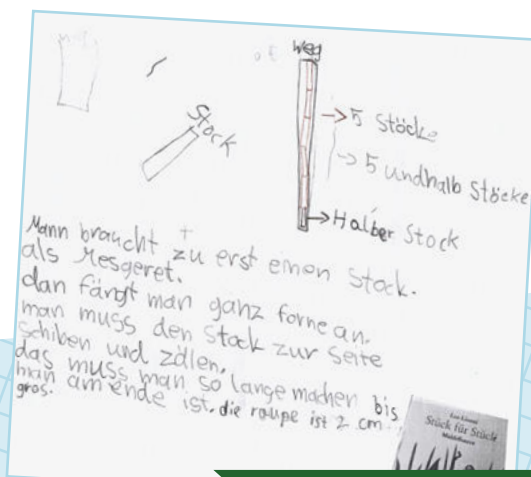 Stock
weg
5 Stöcke
5 undhalb Stöcke
Halber Stock
Mann braucht zu erst einen Stock.
als Mesgeret.
dan fängt man ganz forne an.
man muss den Stock zur seite
schiben und zälen.
das muss man so lange machen bis
man am ende ist. die raupe ist 2 cm
gros.
Leo Lionni
Stück für Stück